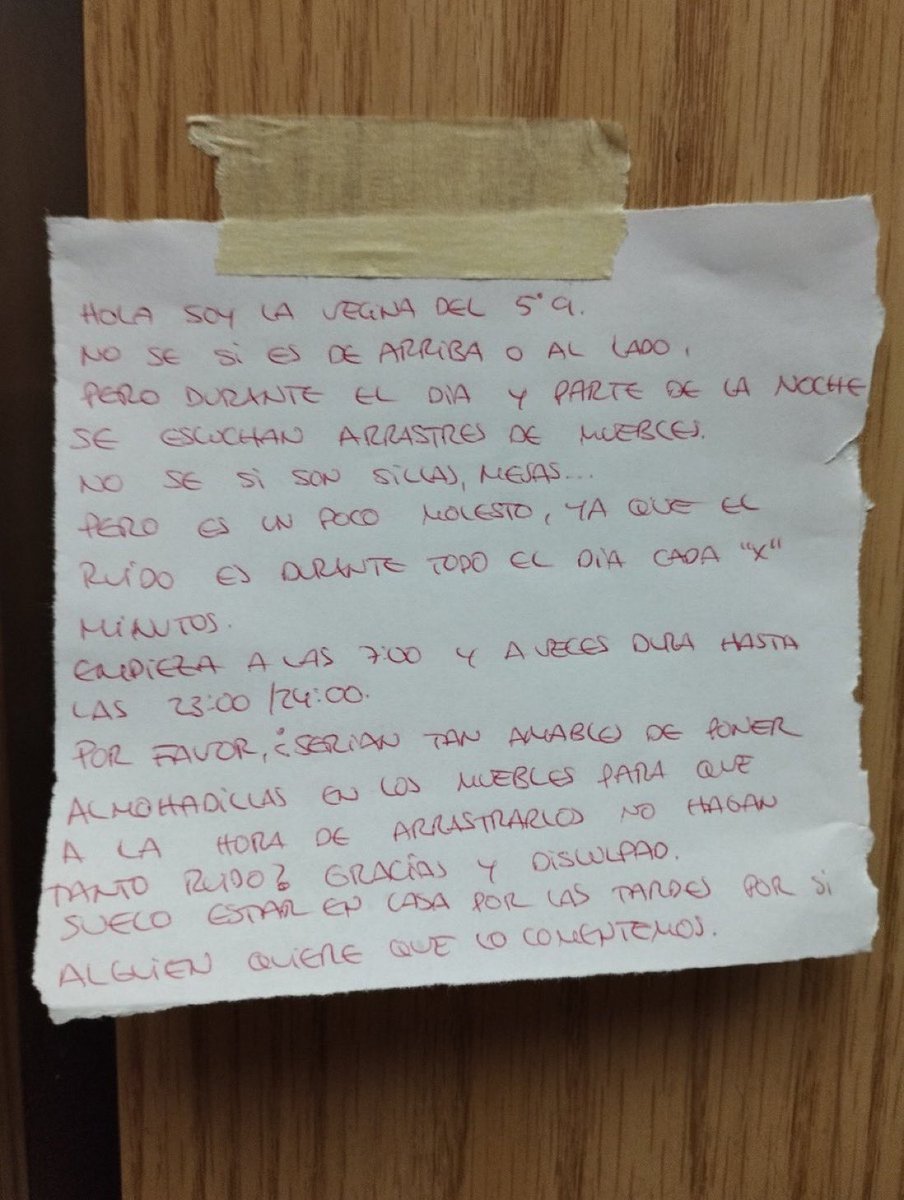 HOLA SOY LA VECINA DEL 5º A.
NO SE SI ES DE ARRIBA O AL LADO,
PERO DURANTE EL DIA Y PARTE DE LA NOCHE
SE ESCUCHAN ARRASTRES DE MUEBLES.
NO SE SI SON SILLAS, MESAS...
PERO ES UN POCO MOLESTO, YA QUE EL
RUIDO ES DURANTE TODO EL DIA CADA "X"
MINUTOS.
EMPIEZA A LAS 7:00 Y A VECES DURA HASTA
LAS 23:00/24:00.
POR FAVOR, ¿SERIAN TAN AMABLES DE PONER
ALMOHADILLAS EN LOS MUEBLES PARA QUE
A LA HORA DE ARRASTRARLOS NO HAGAN
TANTO RUIDO? GRACIAS Y DISCULPAD.
SUELO ESTAR EN CASA POR LAS TARDES POR SI
ALGUIEN QUIERE QUE LO COMENTEMOS.